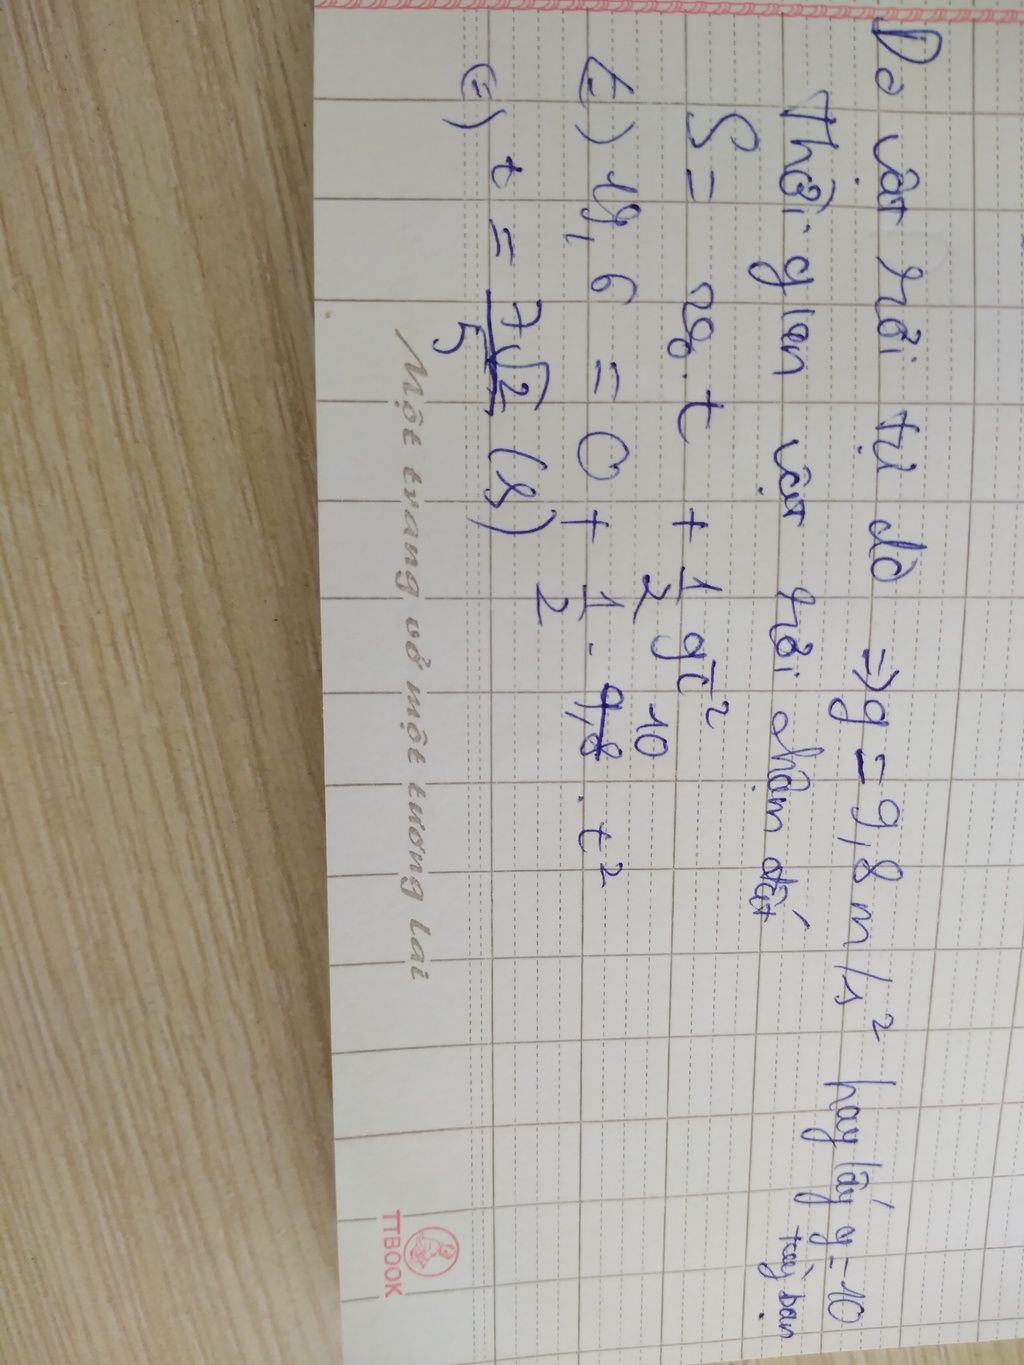 Do vật rơi tự do => g = 9,8 m/s² hay lấy g = 10
tuỳ bạn
Thời gian vật rơi chạm đất
S = v₀.t + 1/2 gt²
(=) 19,6 = 0 + 1/2 . 9,8 . t²
10
(=) t = 7√2/5 (s)
Một trang vở một tương lai
TTBOOK